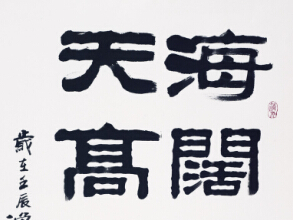 海闊
天高
歲在壬辰